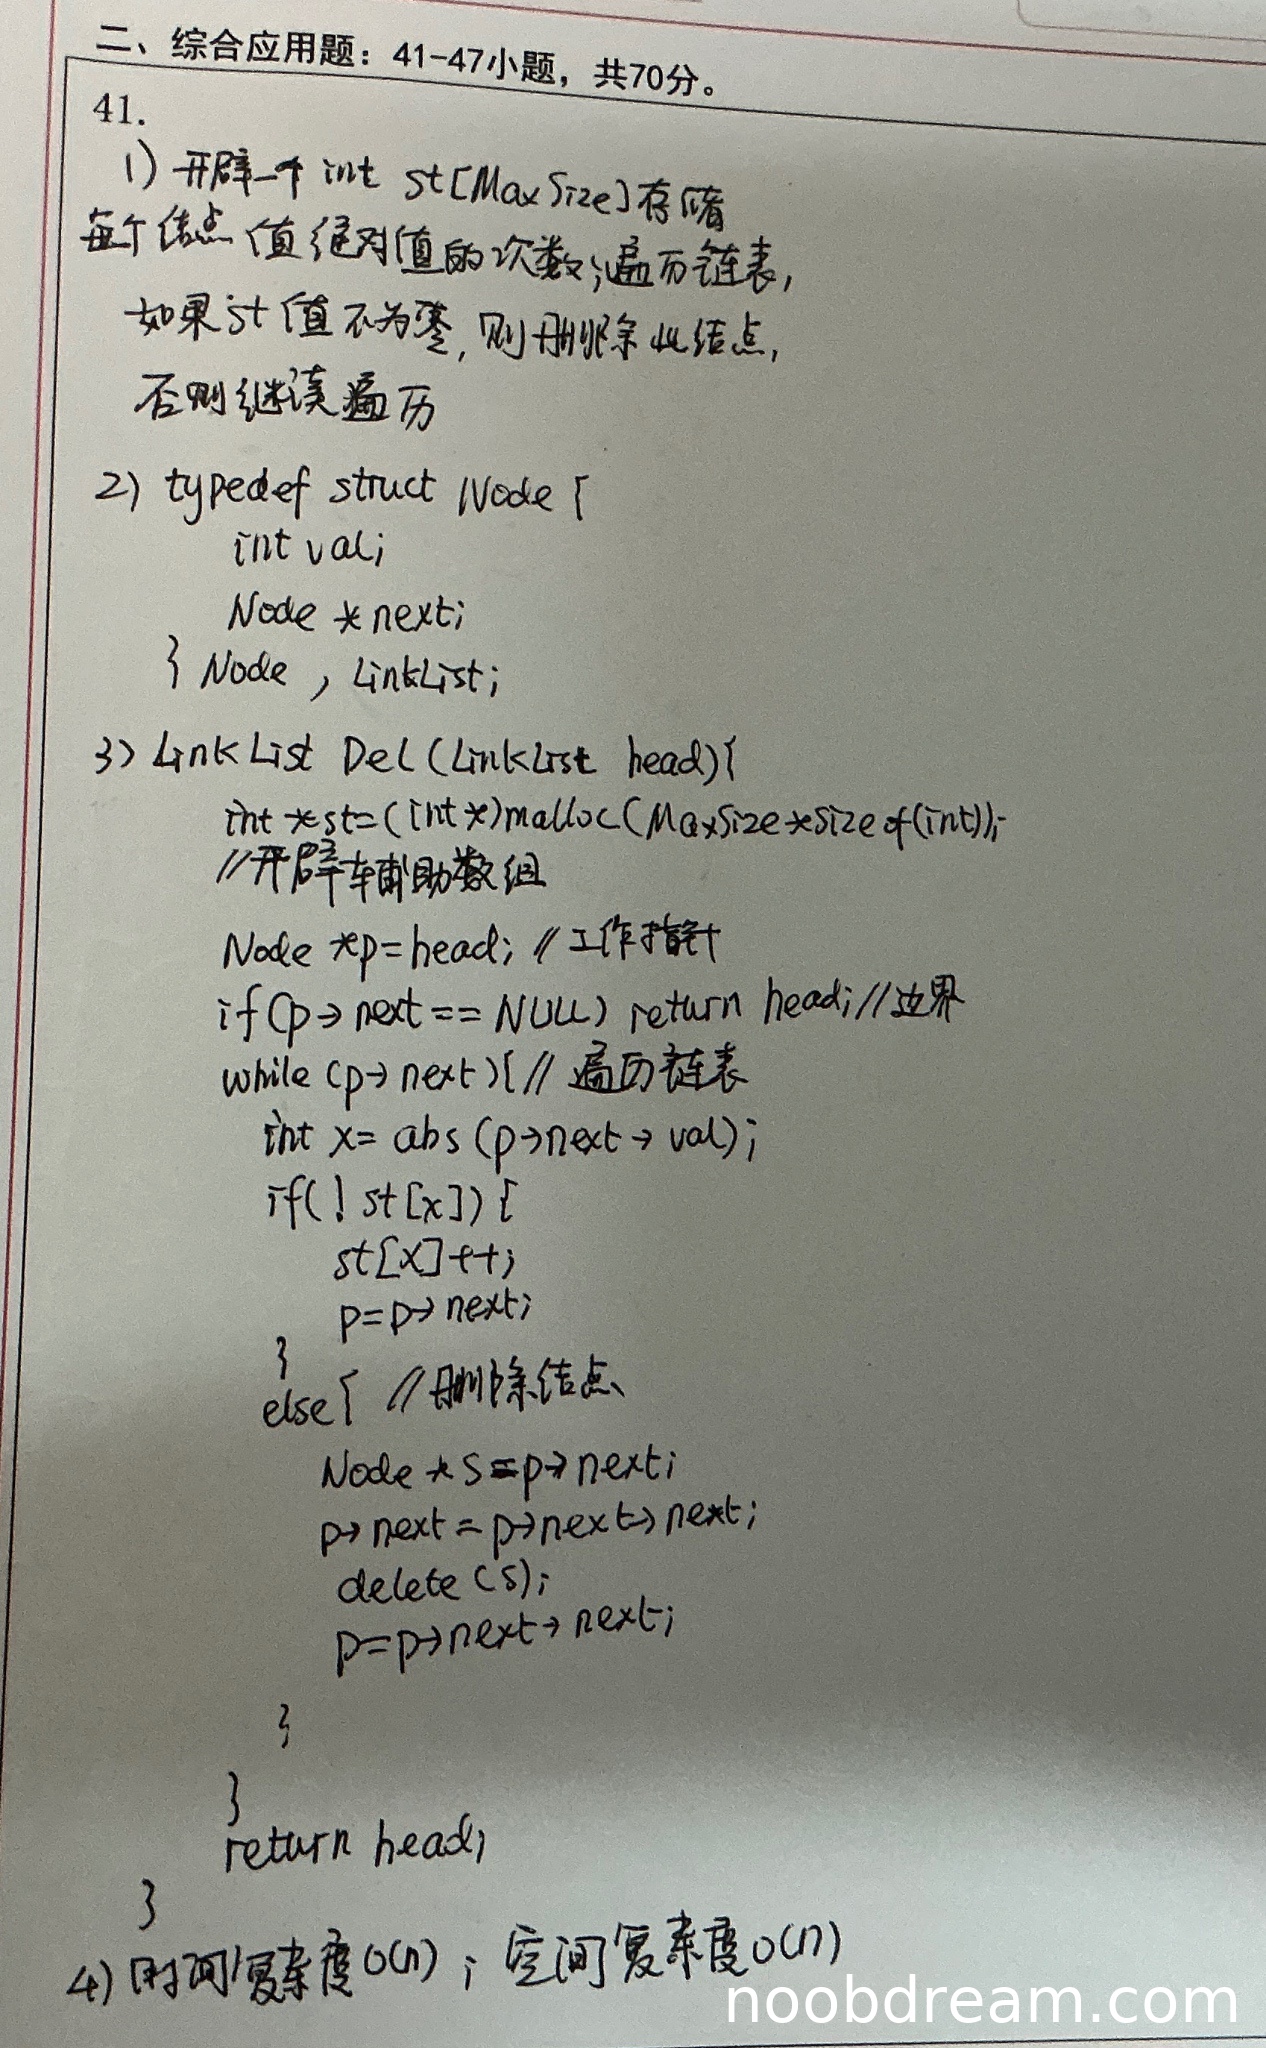 二、综合应用题：41-47小题，共70分。
41.
1) 开辟一个 int st[MaxSize]存储
每个结点值绝对值的次数;遍历链表,
如果st值不为零,则删除此结点,
否则继续遍历
2) typedef struct Node {
int val;
Node *next;
} Node , LinkList;
3) LinkList Del(LinkList head){
int *st=(int*)malloc(MaxSize*sizeof(int));
//开辟辅助数组
Node *p=head; //工作指针
if(p→next==NULL) return head;//边界
while(p→next){// 遍历链表
int x= abs(p→next→val);
if(!st[x]){
st[x]++;
p=p→next;
}
else{ //删除结点
Node *s=p→next;
p→next=p→next→next;
delete(s);
p=p→next→next;
}
}
return head;
}
4)时间复杂度O(n)；空间复杂度O(n)
noobdream.com